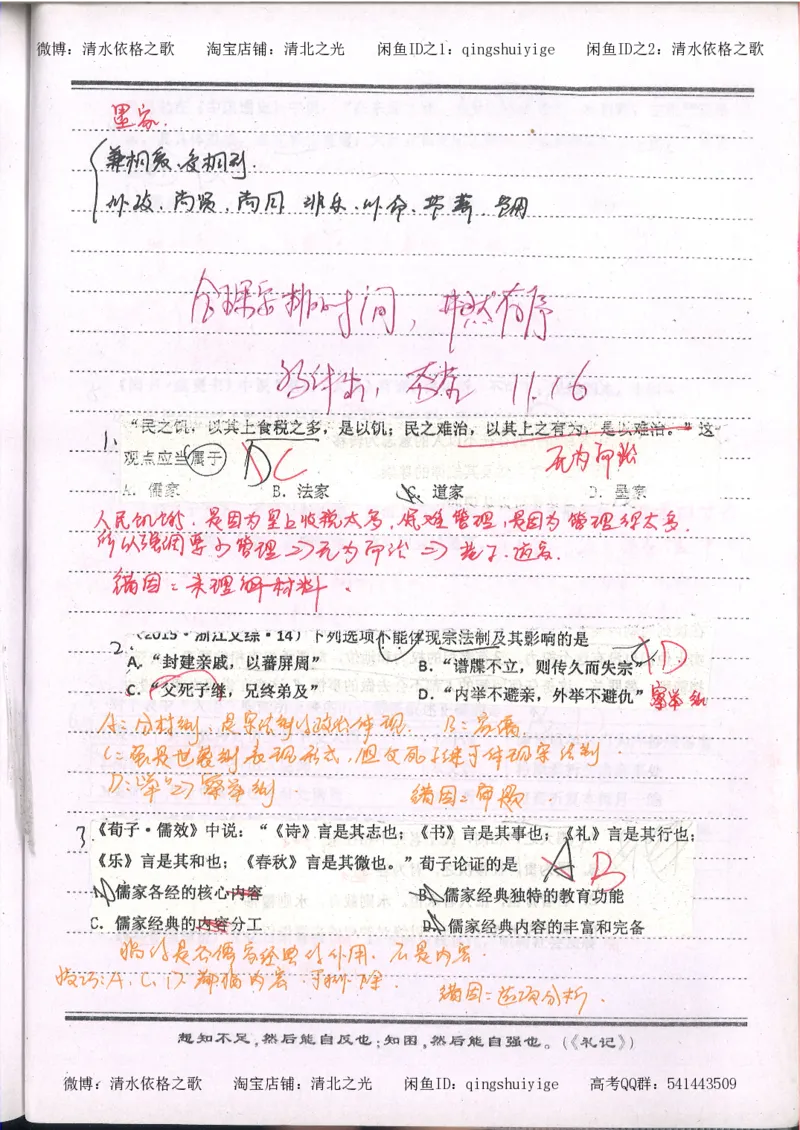 微博：清水依格之歌 淘宝店铺：清北之光 闲鱼ID之1：qingshuiyige 闲鱼ID之2：清水依格之歌
墨家.
兼相爱、交相利.
尚贤、尚同 非乐、节葬、
合理安排时间，井然有序
11.16
1. “民之饥，以其上食税之多，是以饥；民之难治，以其上之有为，是以难治。”这一
观点应当属于 D C 无为而治
A. 儒家 B. 法家 C. 道家 D. 墨家
人民饥饿，是因为皇上收税太多，民难管理，是因为管理很太多.
所以强调要少管理⇒无为而治⇒老子.道家.
错因：未理解材料.
2. （2015·浙江文综·14）下列选项不能体现宗法制及其影响的是
A. “封建亲戚，以蕃屏周” B. “谱牒不立，则传久而失宗” D
C. “父死子继，兄终弟及” D. “内举不避亲，外举不避仇” 察举制
A：分封制，是宗法制的政治体现. B：宗庙.
C：虽是世袭制表现形式，但父死子继于体现宗法制
D：举⇒察举制 错因：审题
3 《荀子·儒效》中说：“《诗》言是其志也；《书》言是其事也；《礼》言是其行也；
《乐》言是其和也；《春秋》言是其微也。”荀子论证的是 A B
A. 儒家各经的核心内容 B. 儒家经典独特的教育功能
C. 儒家经典的内容分工 D. 儒家经典内容的丰富和完备
是各儒家经典的作用，不是内容
技巧：A、C、D 都指内容 可排除.
错因：选项分析.
想知不足，然后能自反也；知困，然后能自强也。（《礼记》）
微博：清水依格之歌 淘宝店铺：清北之光 闲鱼ID：qingshuiyige 高考QQ群：541443509